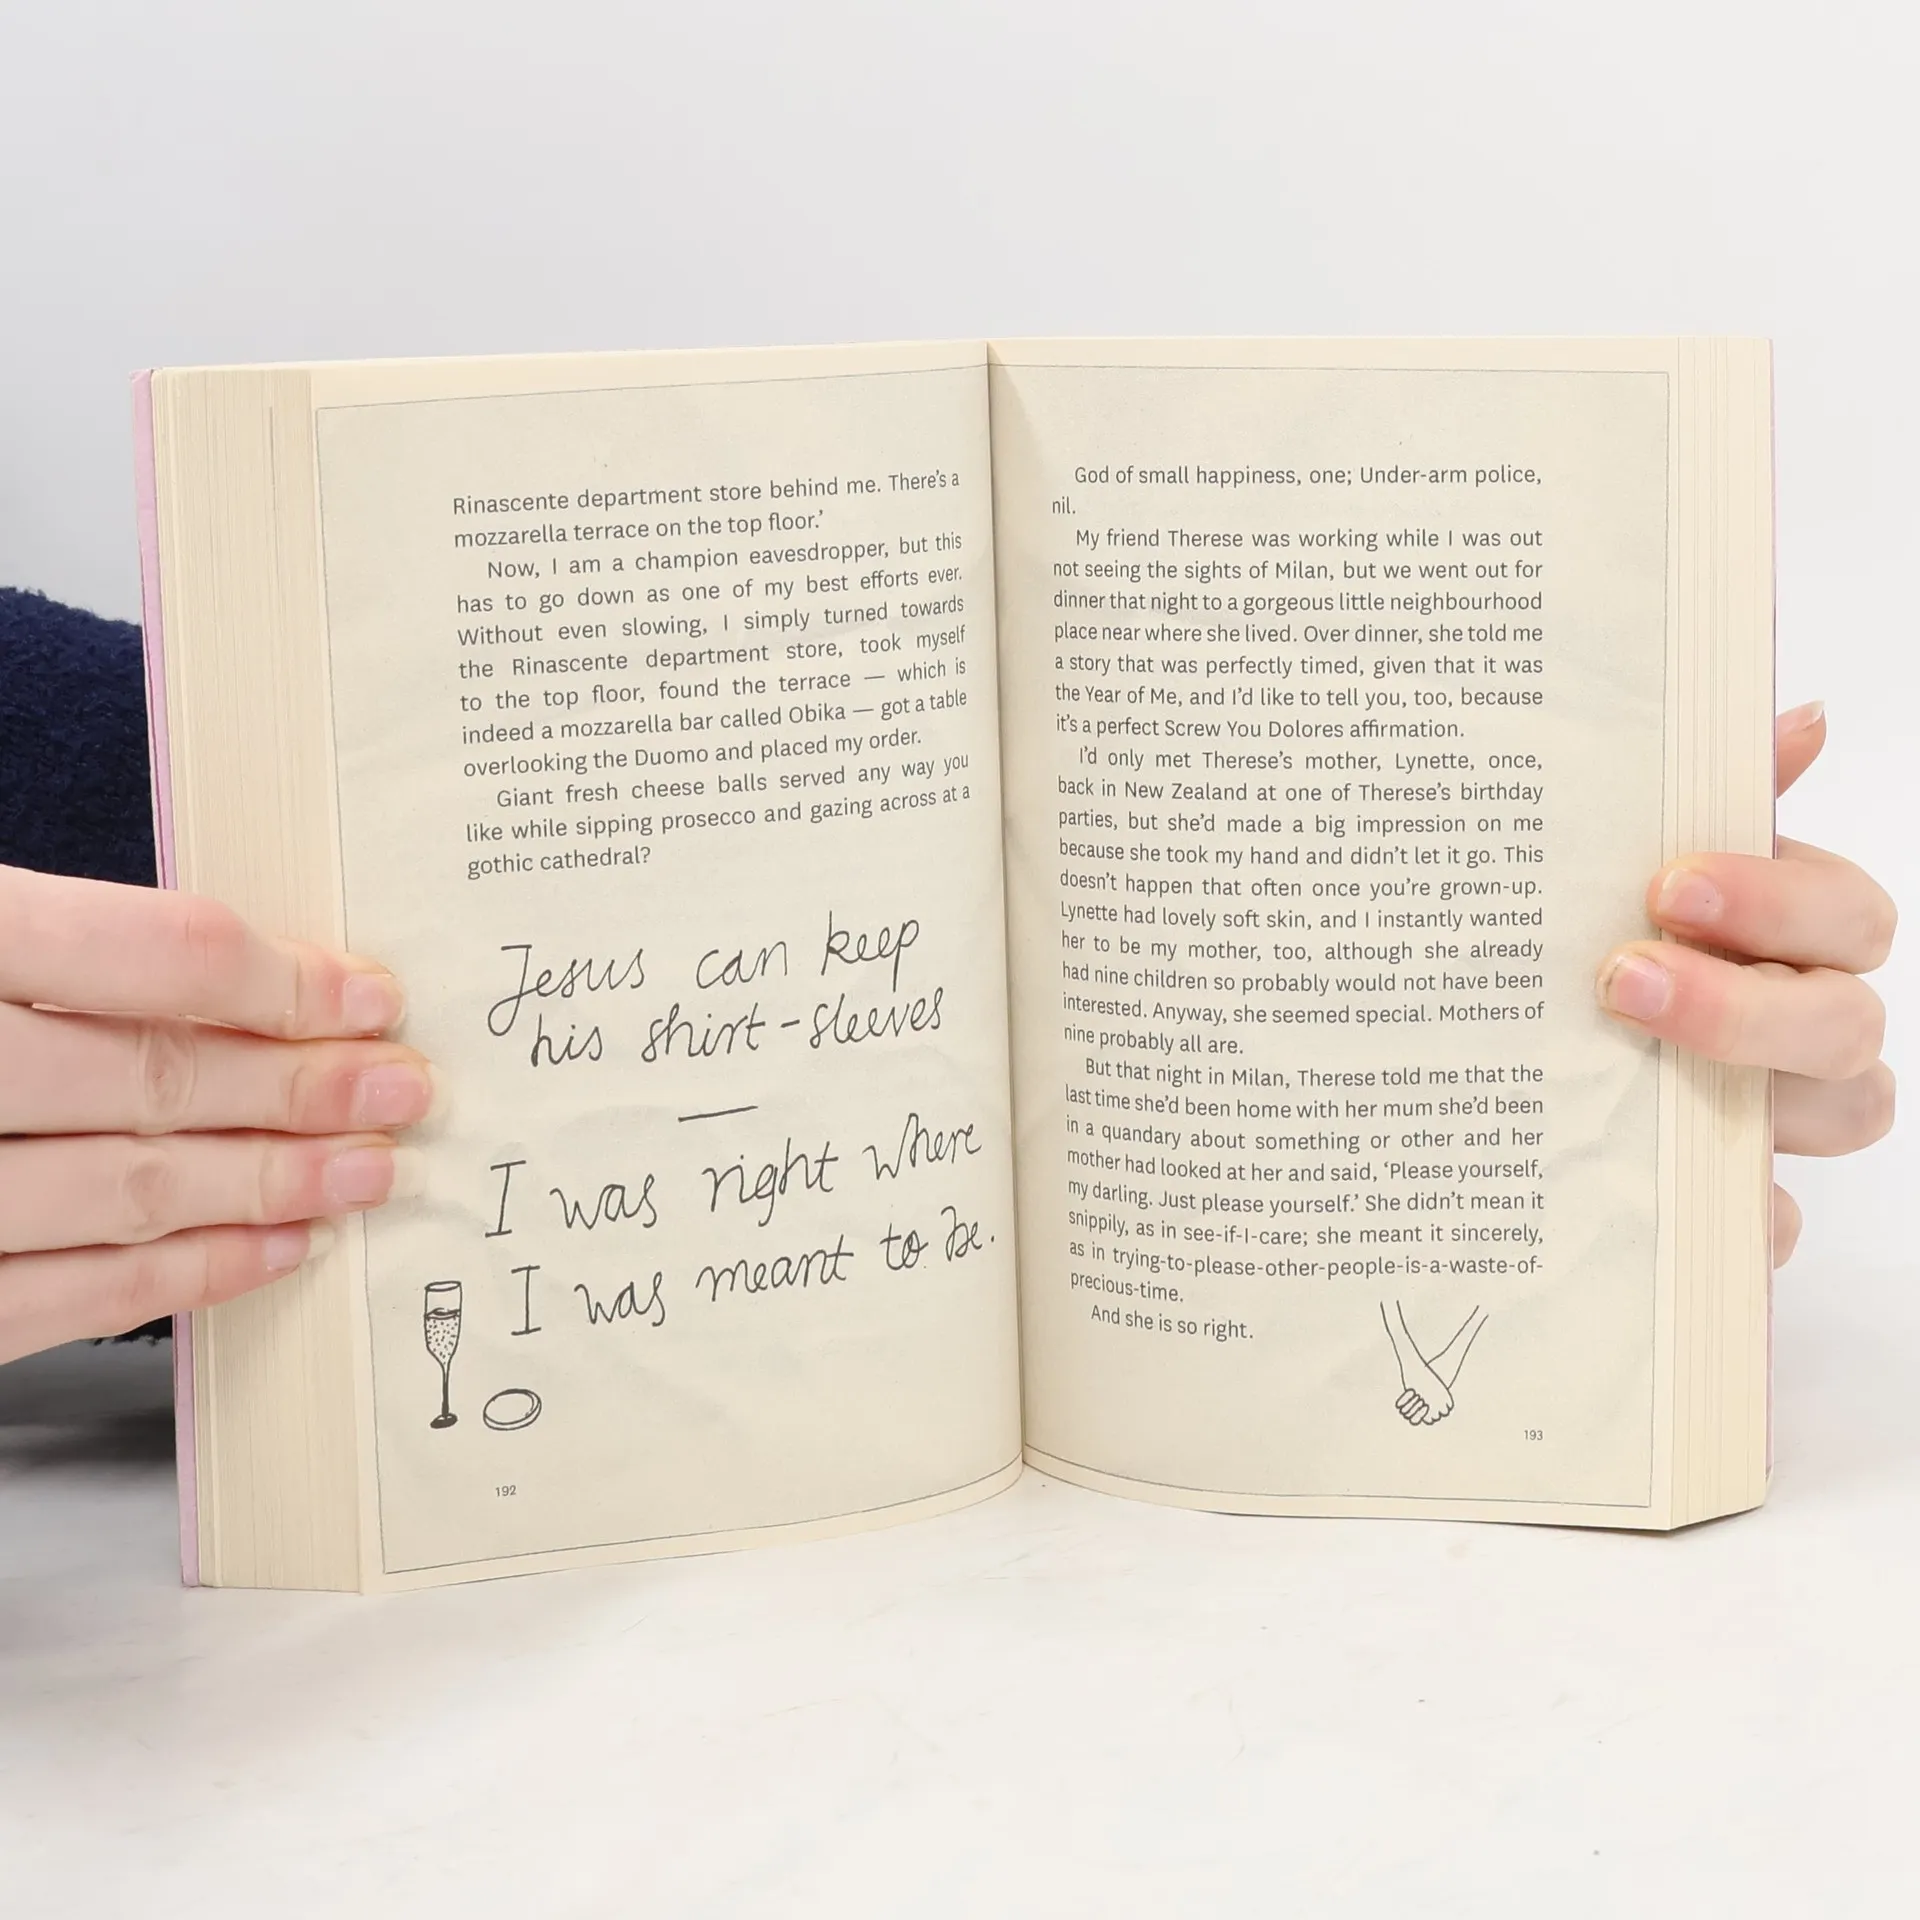 Rinascente department store behind me. There's a
mozzarella terrace on the top floor.'
Now, I am a champion eavesdropper, but this
has to go down as one of my best efforts ever.
Without even slowing, I simply turned towards
the Rinascente department store, took myself
to the top floor, found the terrace — which is
indeed a mozzarella bar called Obika — got a table
overlooking the Duomo and placed my order.
Giant fresh cheese balls served any way you
like while sipping prosecco and gazing across at a
gothic cathedral?
Jesus can keep
his shirt-sleeves
—
I was right where
I was meant to be.
192
God of small happiness, one; Under-arm police,
nil.
My friend Therese was working while I was out
not seeing the sights of Milan, but we went out for
dinner that night to a gorgeous little neighbourhood
place near where she lived. Over dinner, she told me
a story that was perfectly timed, given that it was
the Year of Me, and I'd like to tell you, too, because
it's a perfect Screw You Dolores affirmation.
I'd only met Therese's mother, Lynette, once,
back in New Zealand at one of Therese's birthday
parties, but she'd made a big impression on me
because she took my hand and didn't let it go. This
doesn't happen that often once you're grown-up.
Lynette had lovely soft skin, and I instantly wanted
her to be my mother, too, although she already
had nine children so probably would not have been
interested. Anyway, she seemed special. Mothers of
nine probably all are.
But that night in Milan, Therese told me that the
last time she'd been home with her mum she'd been
in a quandary about something or other and her
mother had looked at her and said, 'Please yourself,
my darling. Just please yourself.' She didn't mean it
snippily, as in see-if-I-care; she meant it sincerely,
as in trying-to-please-other-people-is-a-waste-of-
precious-time.
And she is so right.
193